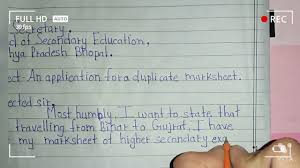 FULL HD AUTO
30 fps
REC
cretary.
d of Secondary Education.
hya Pradesh Bhopal.
ect- An application for a duplicate marksheet.
ected sir,
Most humbly, I want to state that
travelling from Bihar to Gujrat, I have
my marksheet of higher secondary exa